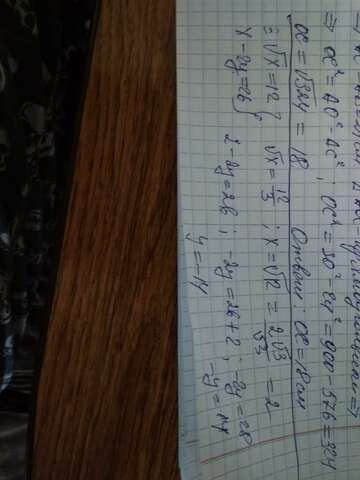 ⇒ OC² = AO² - AC² ; OC² = 30² - 24² = 900 - 576 = 324
OC = √324 = 18 Ответ: OC = 18 см
3√x = 12 } √x = 12/3 ; x = √12 = 2√3/√3 = 2
x - 2y = 26 } 2 - 2y = 26 ; -2y = 26 + 2 ; -2y = 28
-y = 14
y = -14